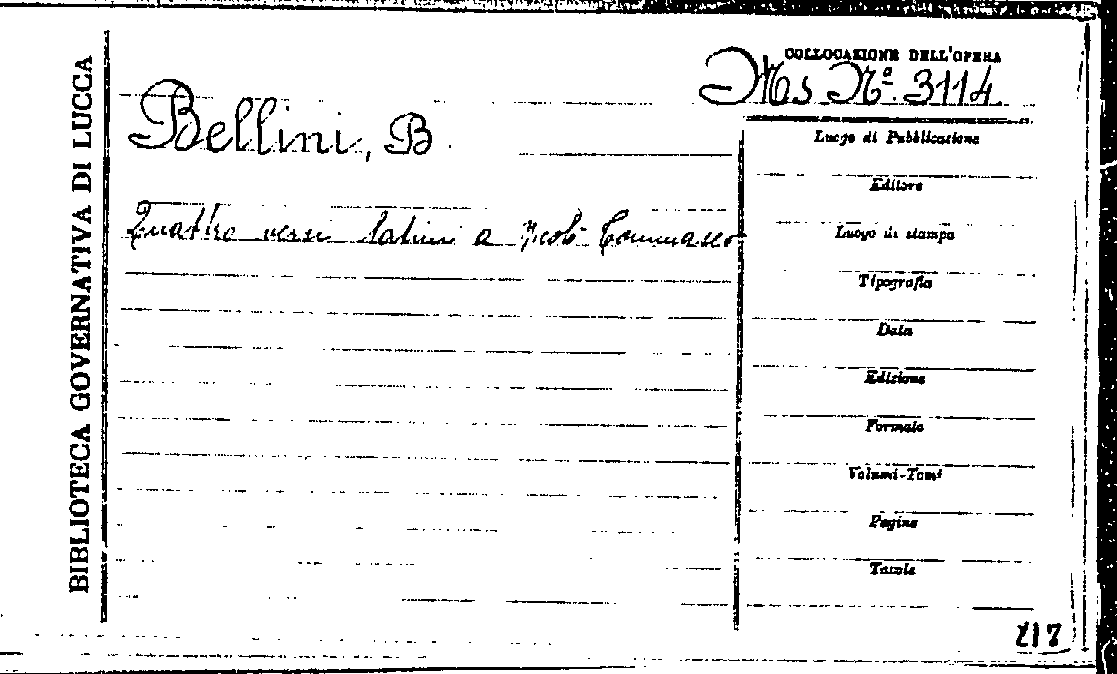 BIBLIOTECA GOVERNATIVA DI LUCCA
COLLOCAZIONE DELL'OPERA
Ms Nº. 3114
Bellini, B.
Quattro versi latini a Nicolò Tommaseo
Luogo di Pubblicazione
Editore
Luogo di stampa
Tipografia
Data
Edizione
Formato
Volumi-Tomi
Pagine
Tavole
217